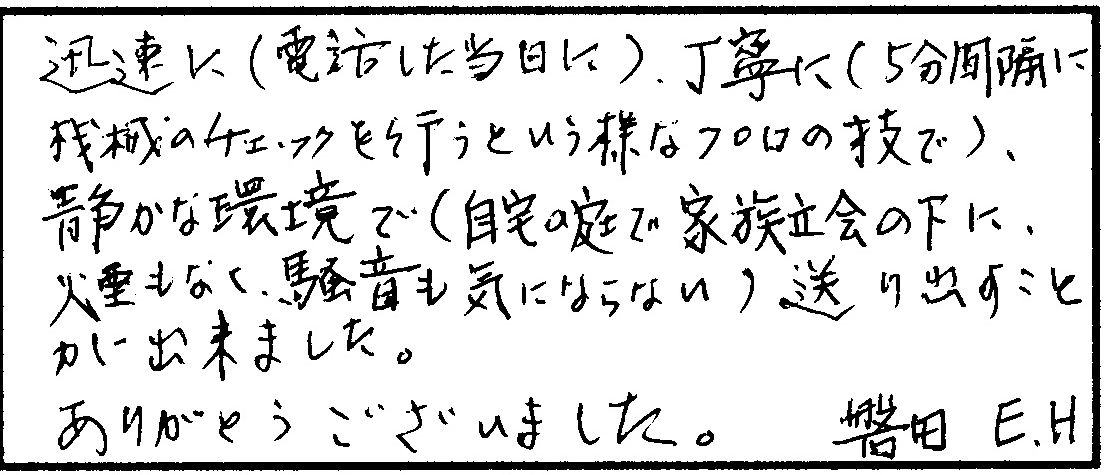 迅速に(電話した当日に)、丁寧に(5分間隔に
機械のチェックを行うという様なプロの技で)、
静かな環境で(自宅の庭で家族立会の下に、
煙もなく、騒音も気にならない)送り出すこと
が出来ました。
ありがとうございました。 磐田 E.H